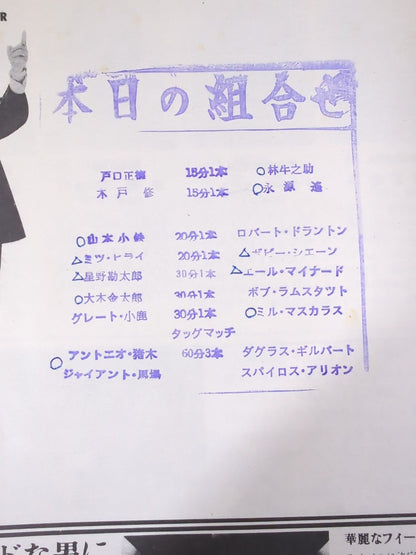 R
本日の組合せ
戸口正徳 15分1本 ○林牛之助
木戸修 15分1本 ○永源遥
○山本小鉄 20分1本 ロバート・ドラントン
△ミツ・ヒライ 20分1本 △ザビー・シエーン
△星野勘太郎 30分1本 △エール・マイナード
○大木金太郎 30分1本 ボブ・ラムスタット
グレート・小鹿 30分1本 ○ミル・マスカラス
タッグマッチ
○アントニオ・猪木 60分3本 ダグラス・ギルバート
ジャイアント・馬場 スパイロス・アリオン
ドな男に
華麗なフィー